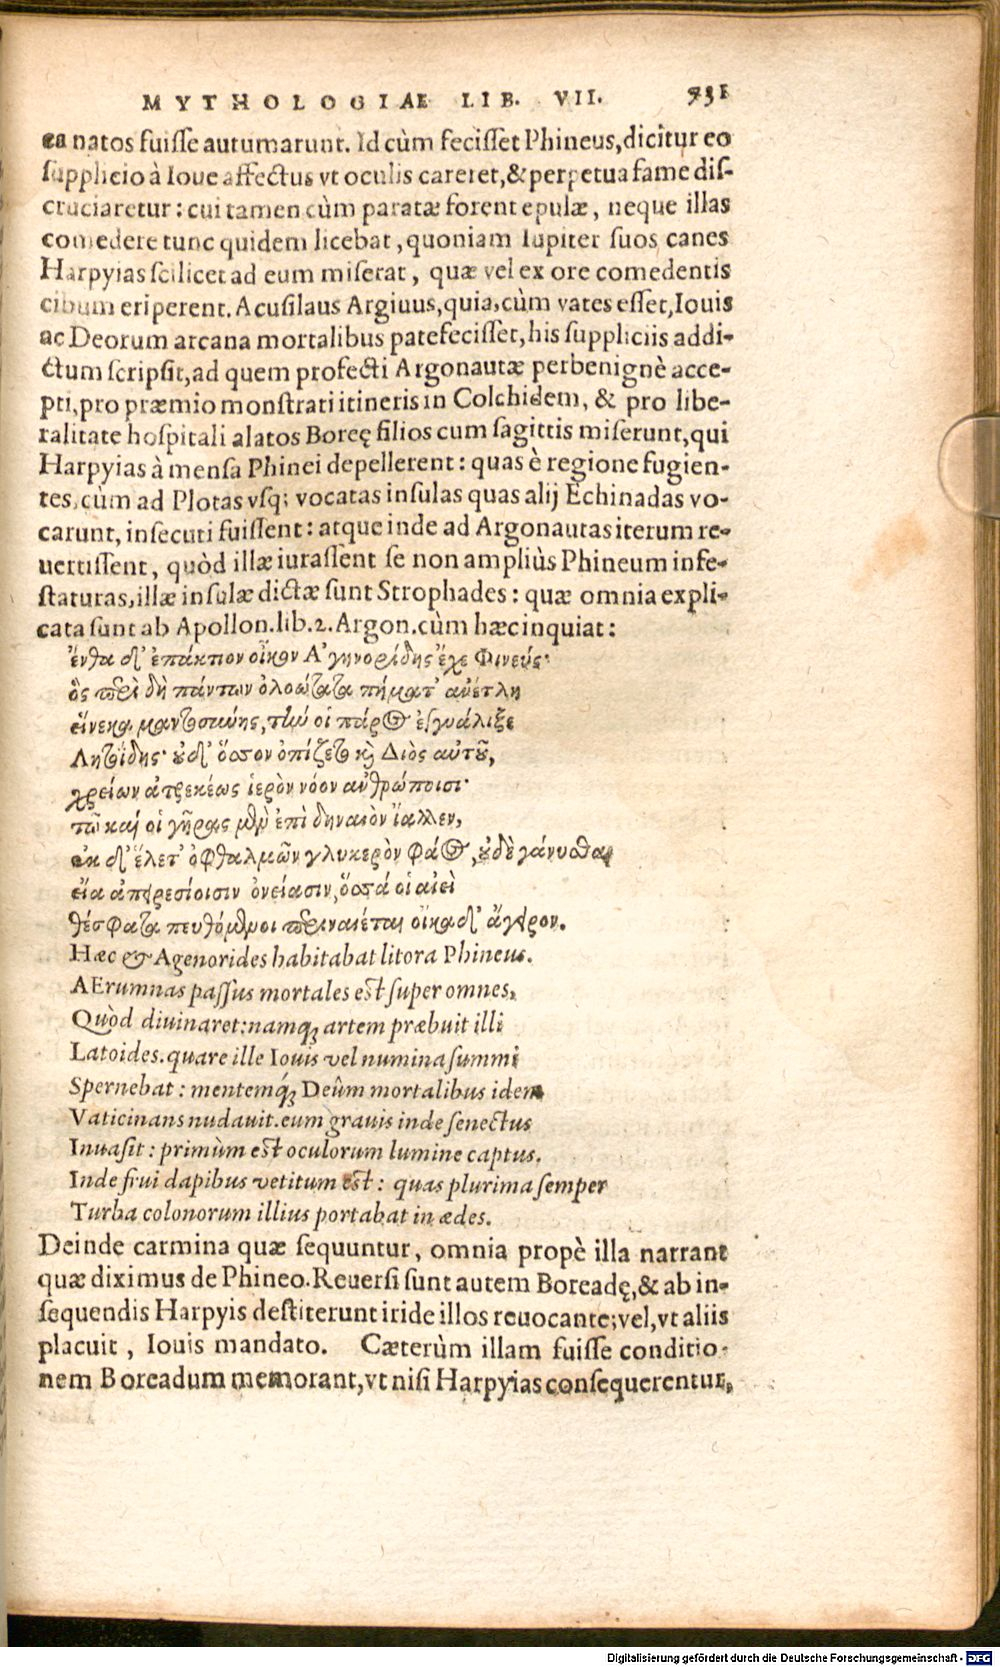 MYTHOLOGIAE LIB. VII. 731
ea natos fuisse autumarunt. Id cùm fecisset Phineus, dicitur eo
supplicio à Ioue affectus vt oculis careret, & perpetua fame dis-
cruciaretur: cui tamen cùm paratæ forent epulæ, neque illas
comedere tunc quidem licebat, quoniam Iupiter suos canes
Harpyias scilicet ad eum miserat, quæ vel ex ore comedentis
cibum eriperent. Acusilaus Argiuus, quia, cùm vates esset, Iouis
ac Deorum arcana mortalibus patefecisset, his suppliciis addi-
ctum scripsit, ad quem profecti Argonautæ perbenignè acce-
pti, pro præmio monstrati itineris in Colchidem, & pro libe-
ralitate hospitali alatos Boreę filios cum sagittis miserunt, qui
Harpyias à mensa Phinei depellerent: quas è regione fugien-
tes, cùm ad Plotas vsq; vocatas insulas quas alij Echinadas vo-
carunt, insecuti fuissent: atque inde ad Argonautas iterum re-
uertissent, quòd illæ iurassent se non ampliùs Phineum infe-
staturas, illæ insulæ dictæ sunt Strophades: quæ omnia expli-
cata sunt ab Apollon. lib. 2. Argon. cùm hæc inquiat:
ἔνθα δ' ἐπάκτιον οἶκον Ἀγηνορίδης ἔχε Φινεύς·
ὃς περὶ δὴ πάντων ὀλοώτατα πήματ' ἀνέτλη
εἵνεκα μαντοσύνης, τὴν οἱ πάρος ἐγγυάλιξε
Λητοΐδης· οὐδ' ὅσσον ὀπίζετο καὶ Διὸς αὐτοῦ,
χρείων ἀτρεκέως ἱερὸν νόον ἀνθρώποισι·
τῷ καί οἱ γῆρας μὲν ἐπὶ δηναιὸν ἴαλλεν,
ἐκ δ' ἕλετ' ὀφθαλμῶν γλυκερὸν φάος, οὐδὲ γάνυσθαι
εἴα ἀπειρεσίοισιν ὀνείασιν, ὅσσά οἱ αἰεὶ
θέσφατα πευθόμενοι περιναιέται οἴκαδ' ἄγειρον.
Hæc & Agenorides habitabat litora Phineus.
AErumnas passus mortales est super omnes,
Quòd diuinaret: namq; artem præbuit illi
Latoides. quare ille Iouis vel numina summi
Spernebat: mentemq́; Deûm mortalibus idem
Vaticinans nudauit. eum grauis inde senectus
Inuasit: primùm est oculorum lumine captus.
Inde frui dapibus vetitum est: quas plurima semper
Turba colonorum illius portabat in ædes.
Deinde carmina quæ sequuntur, omnia propè illa narrant
quæ diximus de Phineo. Reuersi sunt autem Boreadę, & ab in-
sequendis Harpyis destiterunt iride illos reuocante; vel, vt aliis
placuit, Iouis mandato. Cæterùm illam fuisse conditio-
nem Boreadum memorant, vt nisi Harpyias consequerentur,
Digitalisierung gefördert durch die Deutsche Forschungsgemeinschaft - DFG